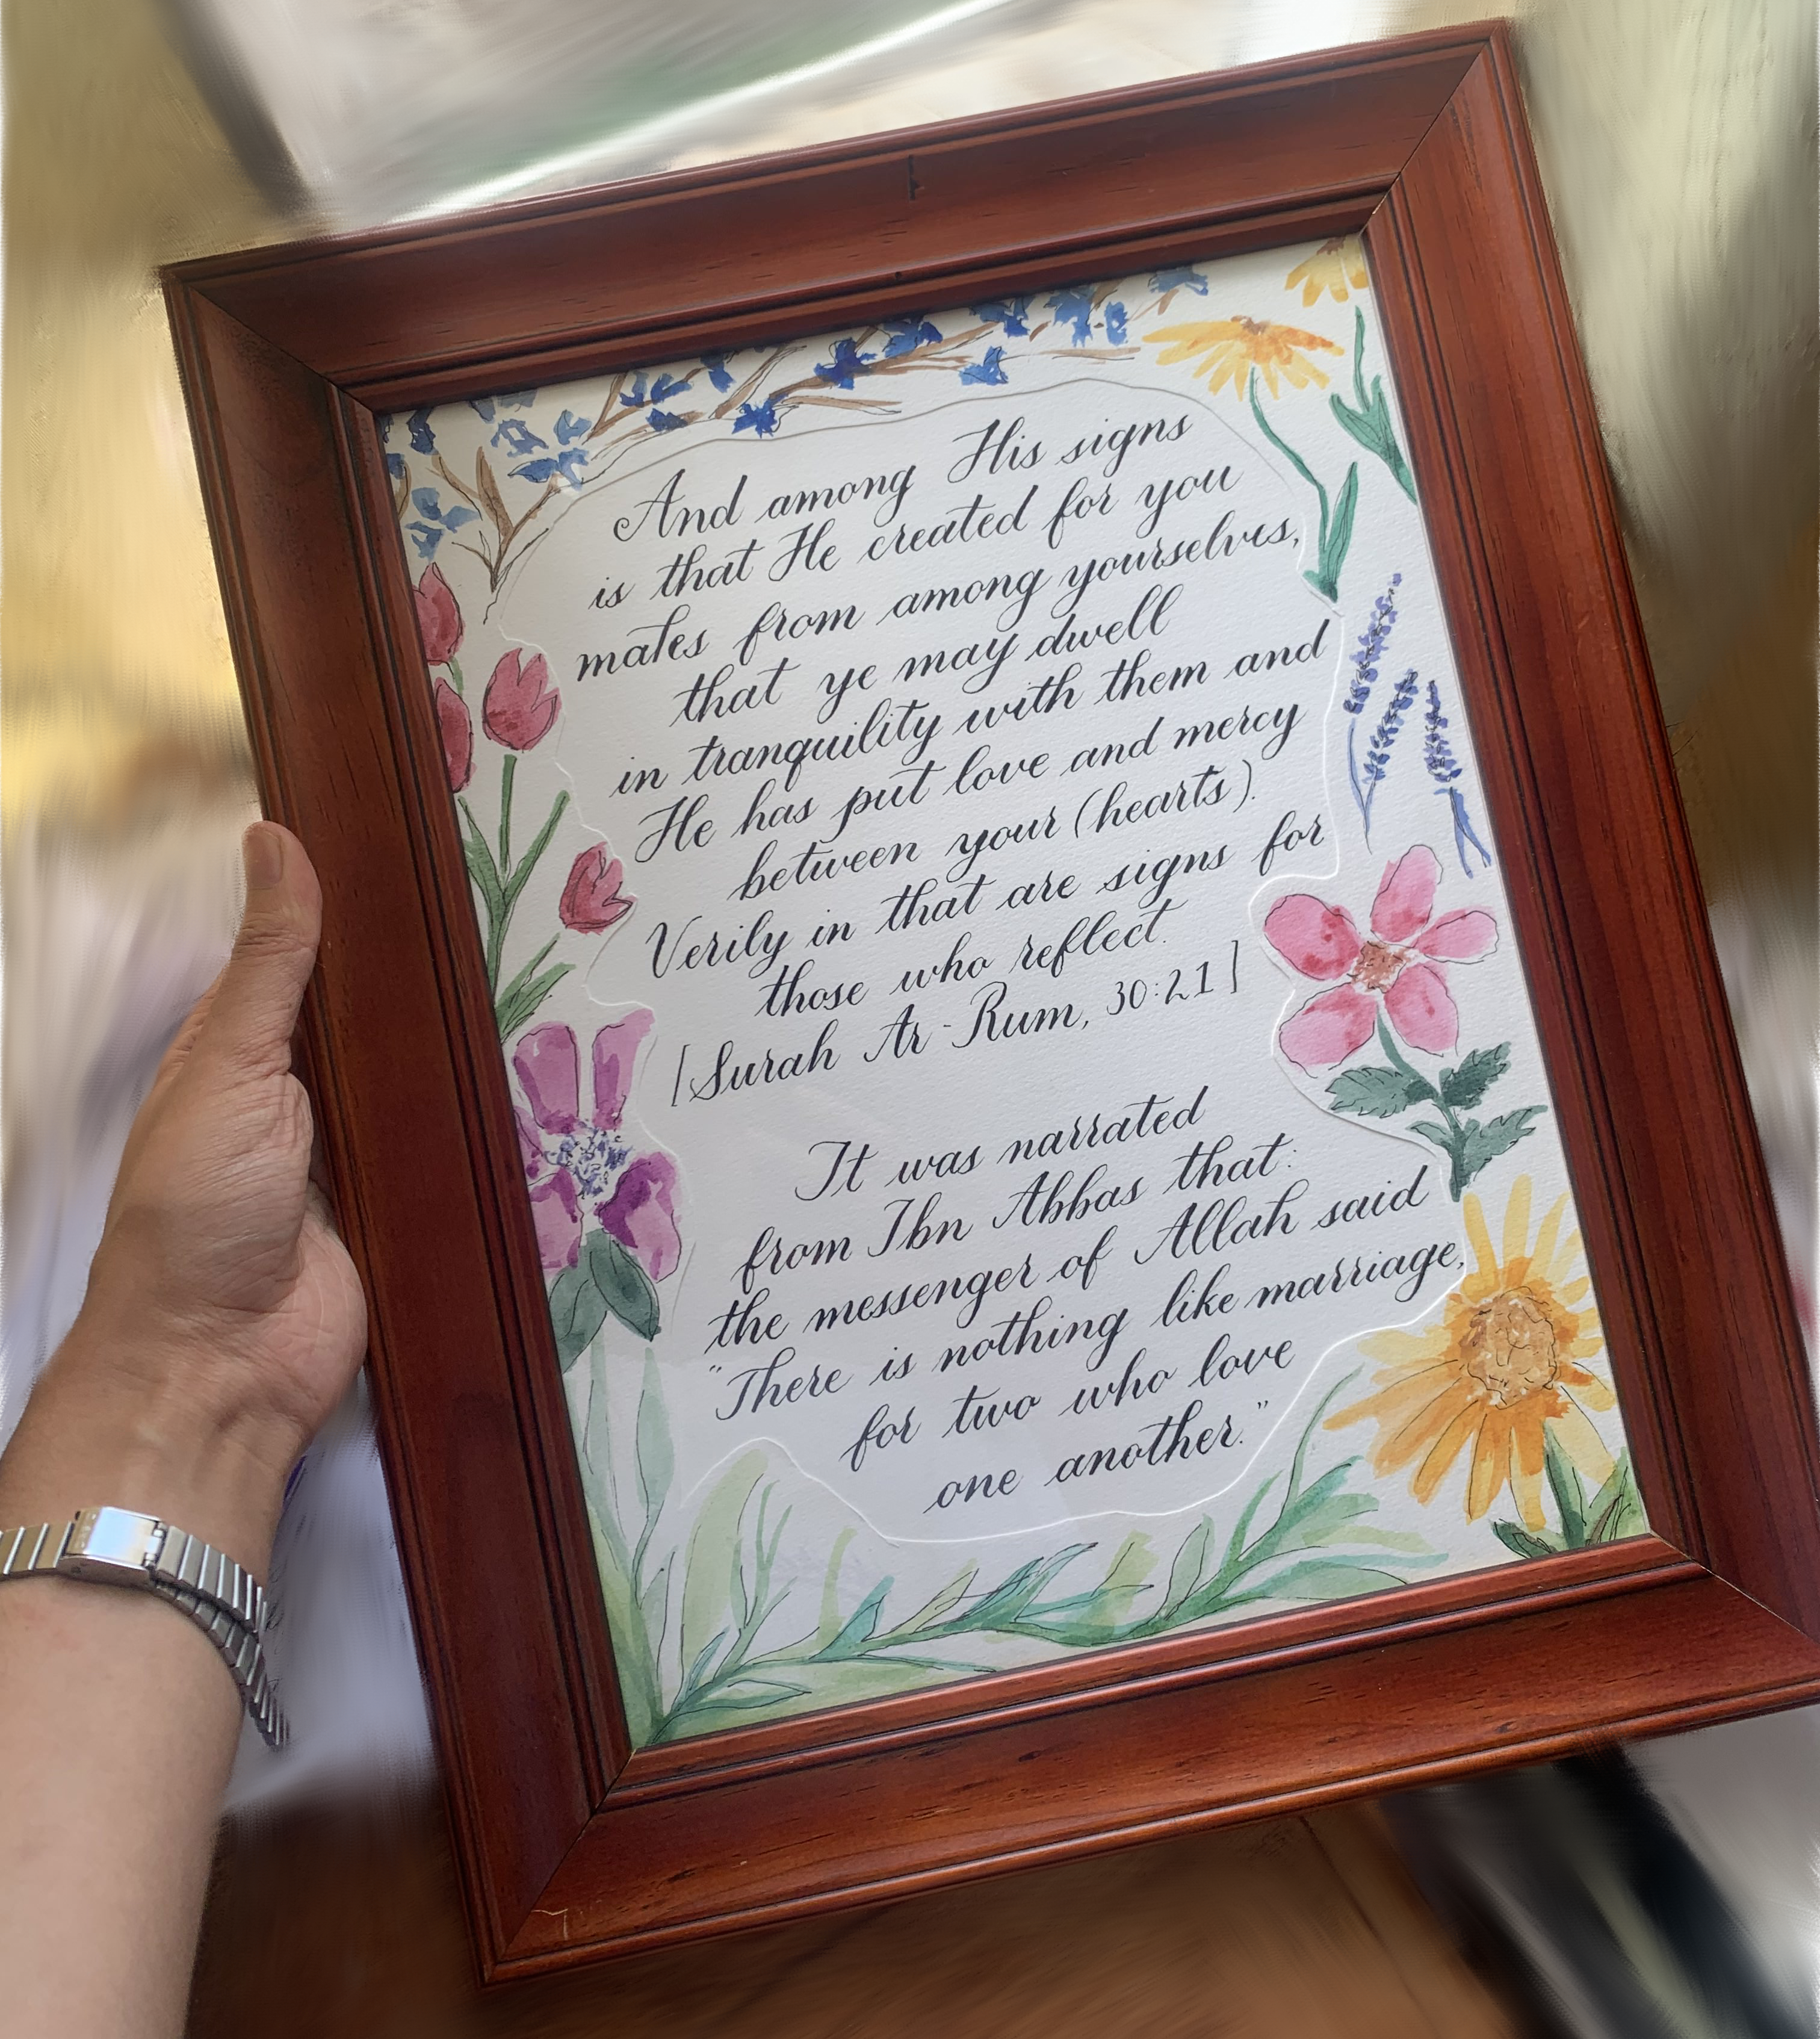 And among His signs
is that He created for you
mates from among yourselves,
that ye may dwell
in tranquility with them and
He has put love and mercy
between your (hearts).
Verily in that are signs for
those who reflect.
[Surah Ar-Rum, 30:21]
It was narrated
from Ibn Abbas that:
the messenger of Allah said
"There is nothing like marriage,
for two who love
one another."